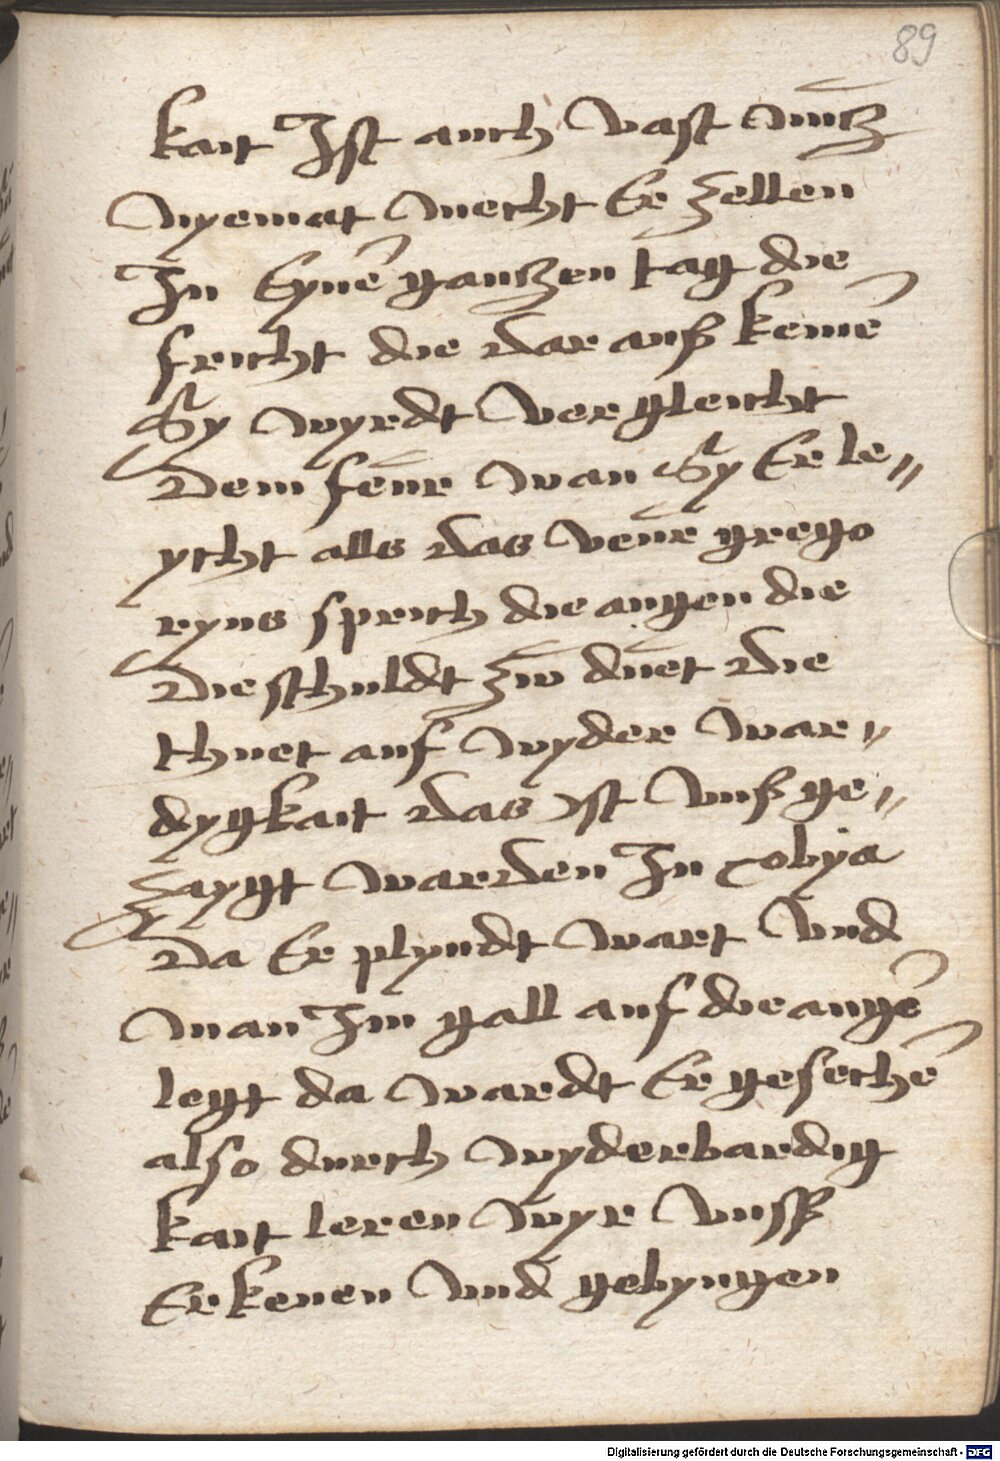 89
kait Ist auch vast nücz
nyemat mecht Er zellen
In Eynē ganczen tag die
frücht die dar auß kemē
Sy wyrdt vergleicht
dem feür wan Sy Er le〃
ycht alls das veür grego
ryus sprich die augen die
die schuldt zuͦ duͤet die
thuet auf wyder war〃
dygkait das yst vnß ge〃
zaygt warden In tobya
da Er plyndt wart vnd
man Im gall auf die augē
legt da wardt Er gesechē
also durch wyderbardig
kait leren wyr vnsß
Erkenen vnd gebyngen
Digitalisierung gefördert durch die Deutsche Forschungsgemeinschaft - DFG